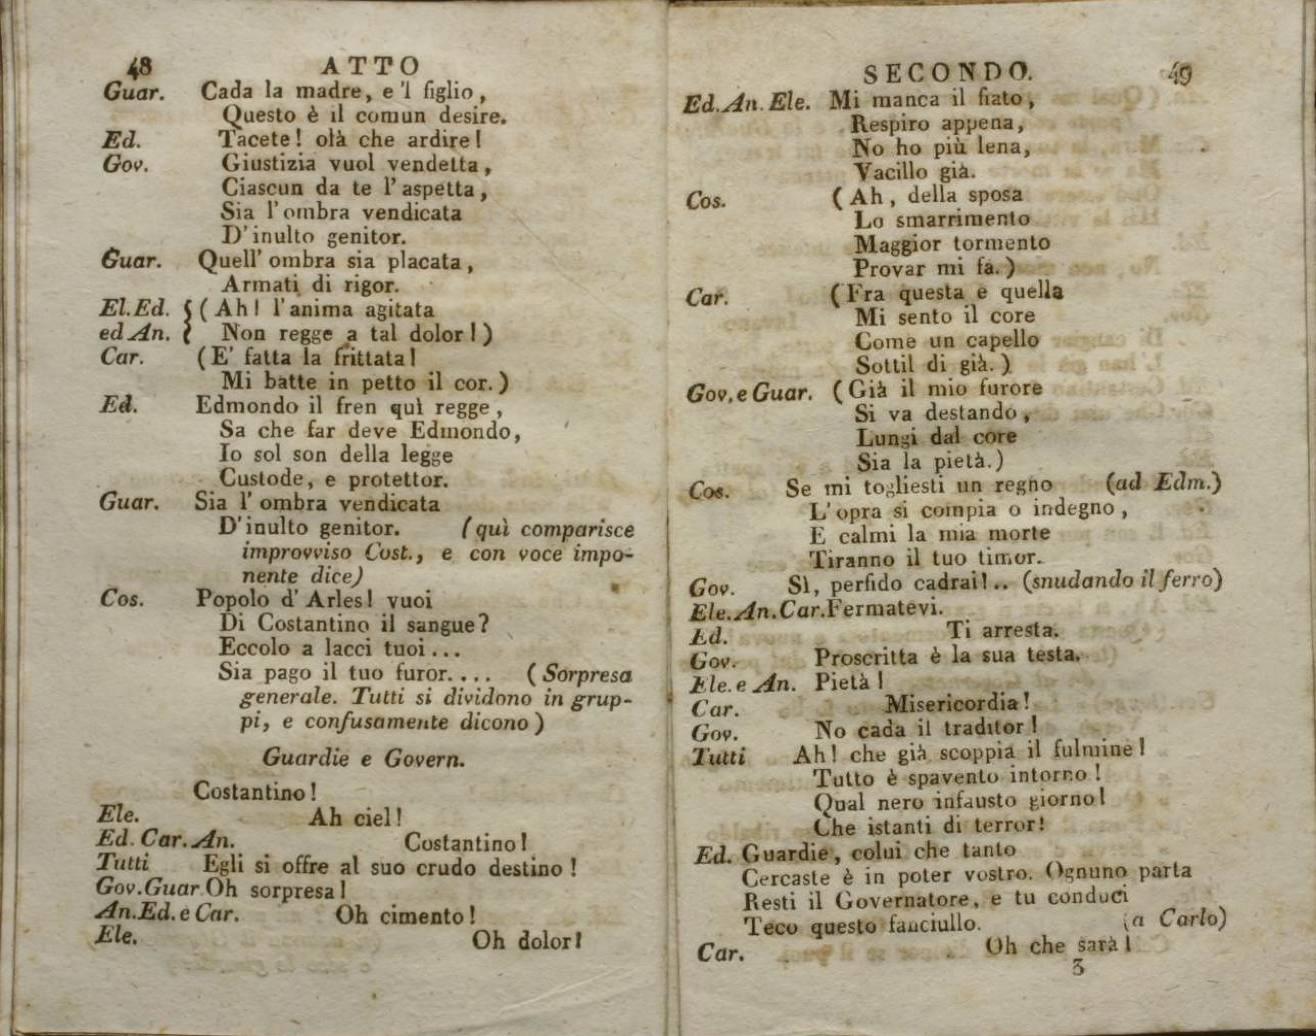 48 ATTO
Guar. Cada la madre, e 'l figlio,
Questo è il comun desire.
Ed. Tacete! olà che ardire!
Gov. Giustizia vuol vendetta,
Ciascun da te l' aspetta,
Sia l' ombra vendicata
D' inulto genitor.
Guar. Quell' ombra sia placata,
Armati di rigor.
El. Ed. { ( Ah! l' anima agitata
ed An. { Non regge a tal dolor!)
Car. (E' fatta la frittata!
Mi batte in petto il cor.)
Ed. Edmondo il fren quì regge,
Sa che far deve Edmondo,
Io sol son della legge
Custode, e protettor.
Guar. Sia l' ombra vendicata
D' inulto genitor. (quì comparisce
improvviso Cost., e con voce impo-
nente dice)
Cos. Popolo d' Arles! vuoi
Di Costantino il sangue?
Eccolo a lacci tuoi...
Sia pago il tuo furor.... (Sorpresa
generale. Tutti si dividono in grup-
pi, e confusamente dicono)
Guardie e Govern.
Costantino!
Ele. Ah ciel!
Ed. Car. An. Costantino!
Tutti Egli si offre al suo crudo destino!
Gov. Guar. Oh sorpresa!
An. Ed. e Car. Oh cimento!
Ele. Oh dolor!
SECONDO. 49
Ed. An. Ele. Mi manca il fiato,
Respiro appena,
No ho più lena,
Vacillo già.
Cos. (Ah, della sposa
Lo smarrimento
Maggior tormento
Provar mi fa.)
Car. (Fra questa e quella
Mi sento il core
Come un capello
Sottil di già.)
Gov. e Guar. (Già il mio furore
Si va destando,
Lungi dal core
Sia la pietà.)
Cos. Se mi togliesti un regno (ad Edm.)
L' opra si compia o indegno,
E calmi la mia morte
Tiranno il tuo timor.
Gov. Sì, perfido cadrai!.. (snudando il ferro)
Ele. An. Car. Fermatevi.
Ed. Ti arresta.
Gov. Proscritta è la sua testa.
Ele. e An. Pietà!
Car. Misericordia!
Gov. No cada il traditor!
Tutti Ah! che già scoppia il fulmine!
Tutto è spavento intorno!
Qual nero infausto giorno!
Che istanti di terror!
Ed. Guardie, colui che tanto
Cercaste è in poter vostro. Ognuno parta
Resti il Governatore, e tu conduci
Teco questo fanciullo. (a Carlo)
Car. Oh che sarà!
3